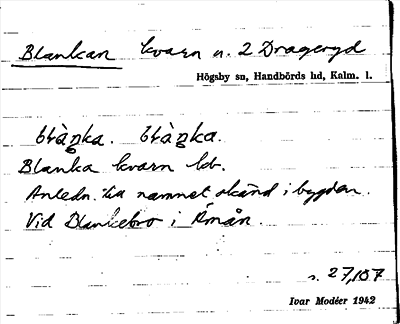 Blankan kvarn u. 2 Drageryd
Högsby sn, Handbörds hd, Kalm. l.
blàŋka. blàŋka.
Blanka kvarn kb.
Anledn. till namnet okänd i bygden.
Vid Blankebro i Åmån.
s. 27,157
Ivar Modéer 1942